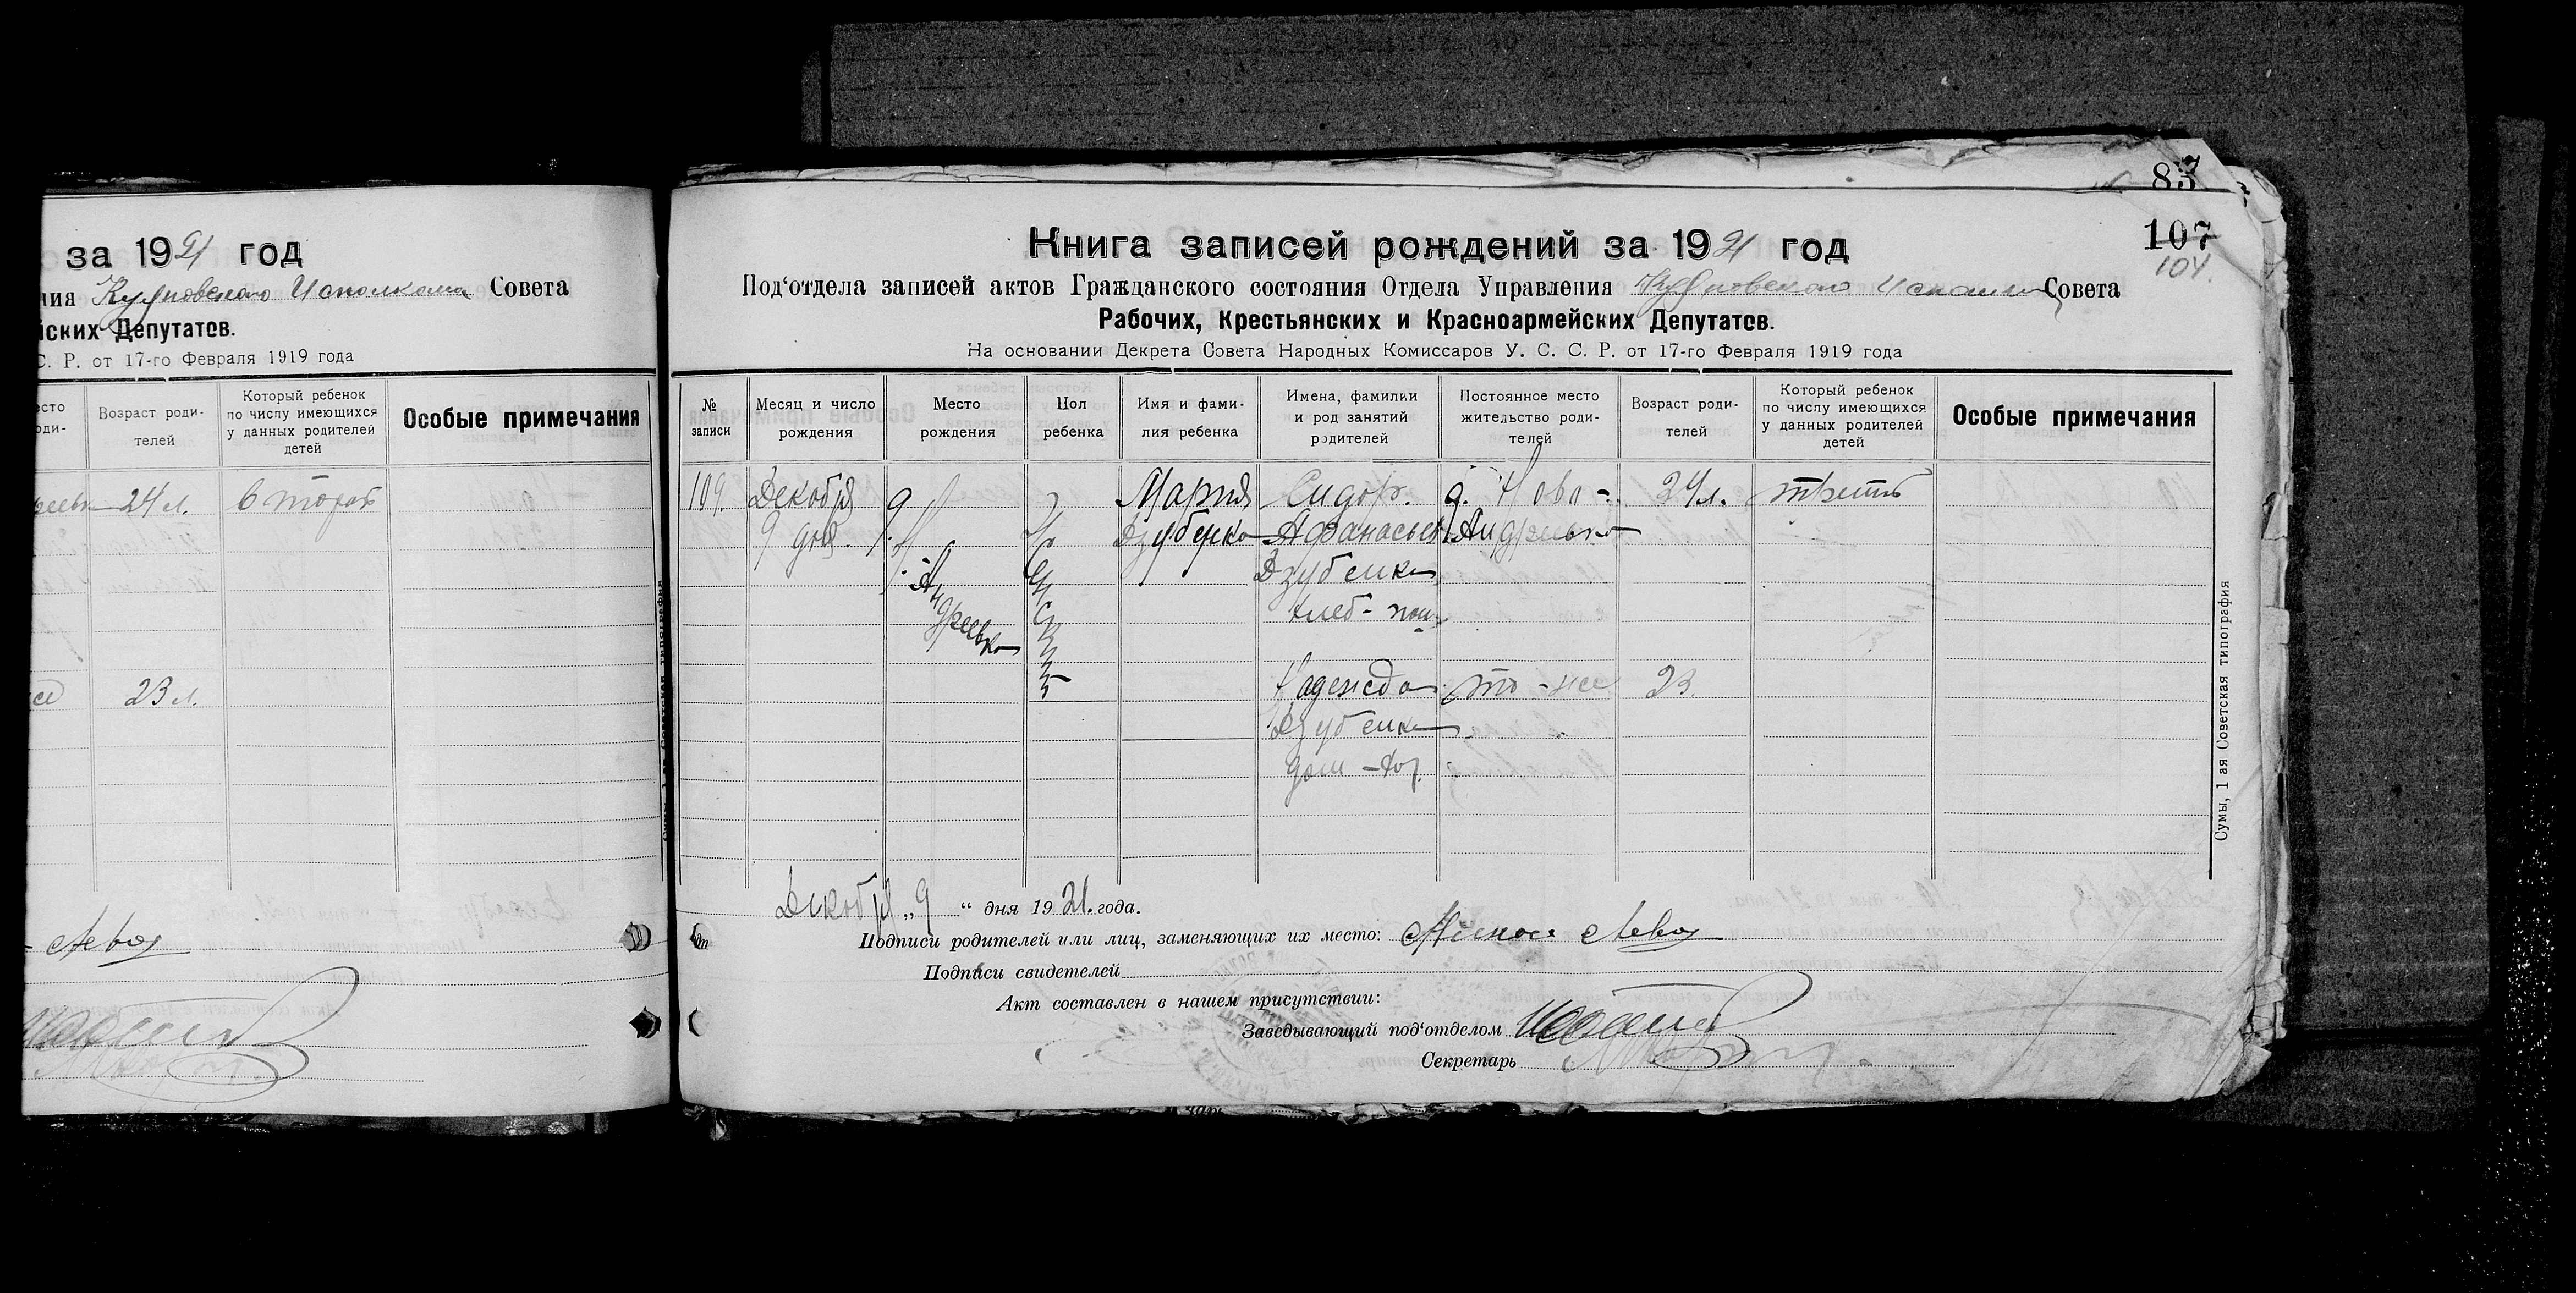 за 1921 год
ния Исполкома Совета
йских Депутатов.
С. Р. от 17-го Февраля 1919 года
есто оди-
Возраст роди-
телей
Который ребенок
по числу имеющихся
у данных родителей
детей
Особые примечания
24 л.
второй
23 л.
83
107
104.
Книга записей рождений за 1921 год
Под'отдела записей актов Гражданского состояния Отдела Управления Совета
Рабочих, Крестьянских и Красноармейских Депутатов.
На основании Декрета Совета Народных Комиссаров У. С. С. Р. от 17-го Февраля 1919 года
№
записи
Месяц и число
рождения
Место
рождения
Пол
ребенка
Имя и фами-
лия ребенка
Имена, фамилии
и род занятий
родителей
Постоянное место
жительство роди-
телей
Возраст роди-
телей
Который ребенок
по числу имеющихся
у данных родителей
детей
Особые примечания
109.
Декабря
9 дня
д.
Н.
Андреевка
Женский
Мария
Дзубенко
Сидор.
Афанасьев
Дзубенко
хлеб-паш.
д. Ново-
Андреевка
24 л.
третий
Надежда
Дзубенко
дом-хоз.
то-же
23.
Декабря „9“ дня 1921. года.
Подписи родителей или лиц, заменяющих их место:
Подписи свидетелей
Акт составлен в нашем присутствии:
Заведывающий под'отделом
Секретарь
Сумы, 1 ая Советская типография